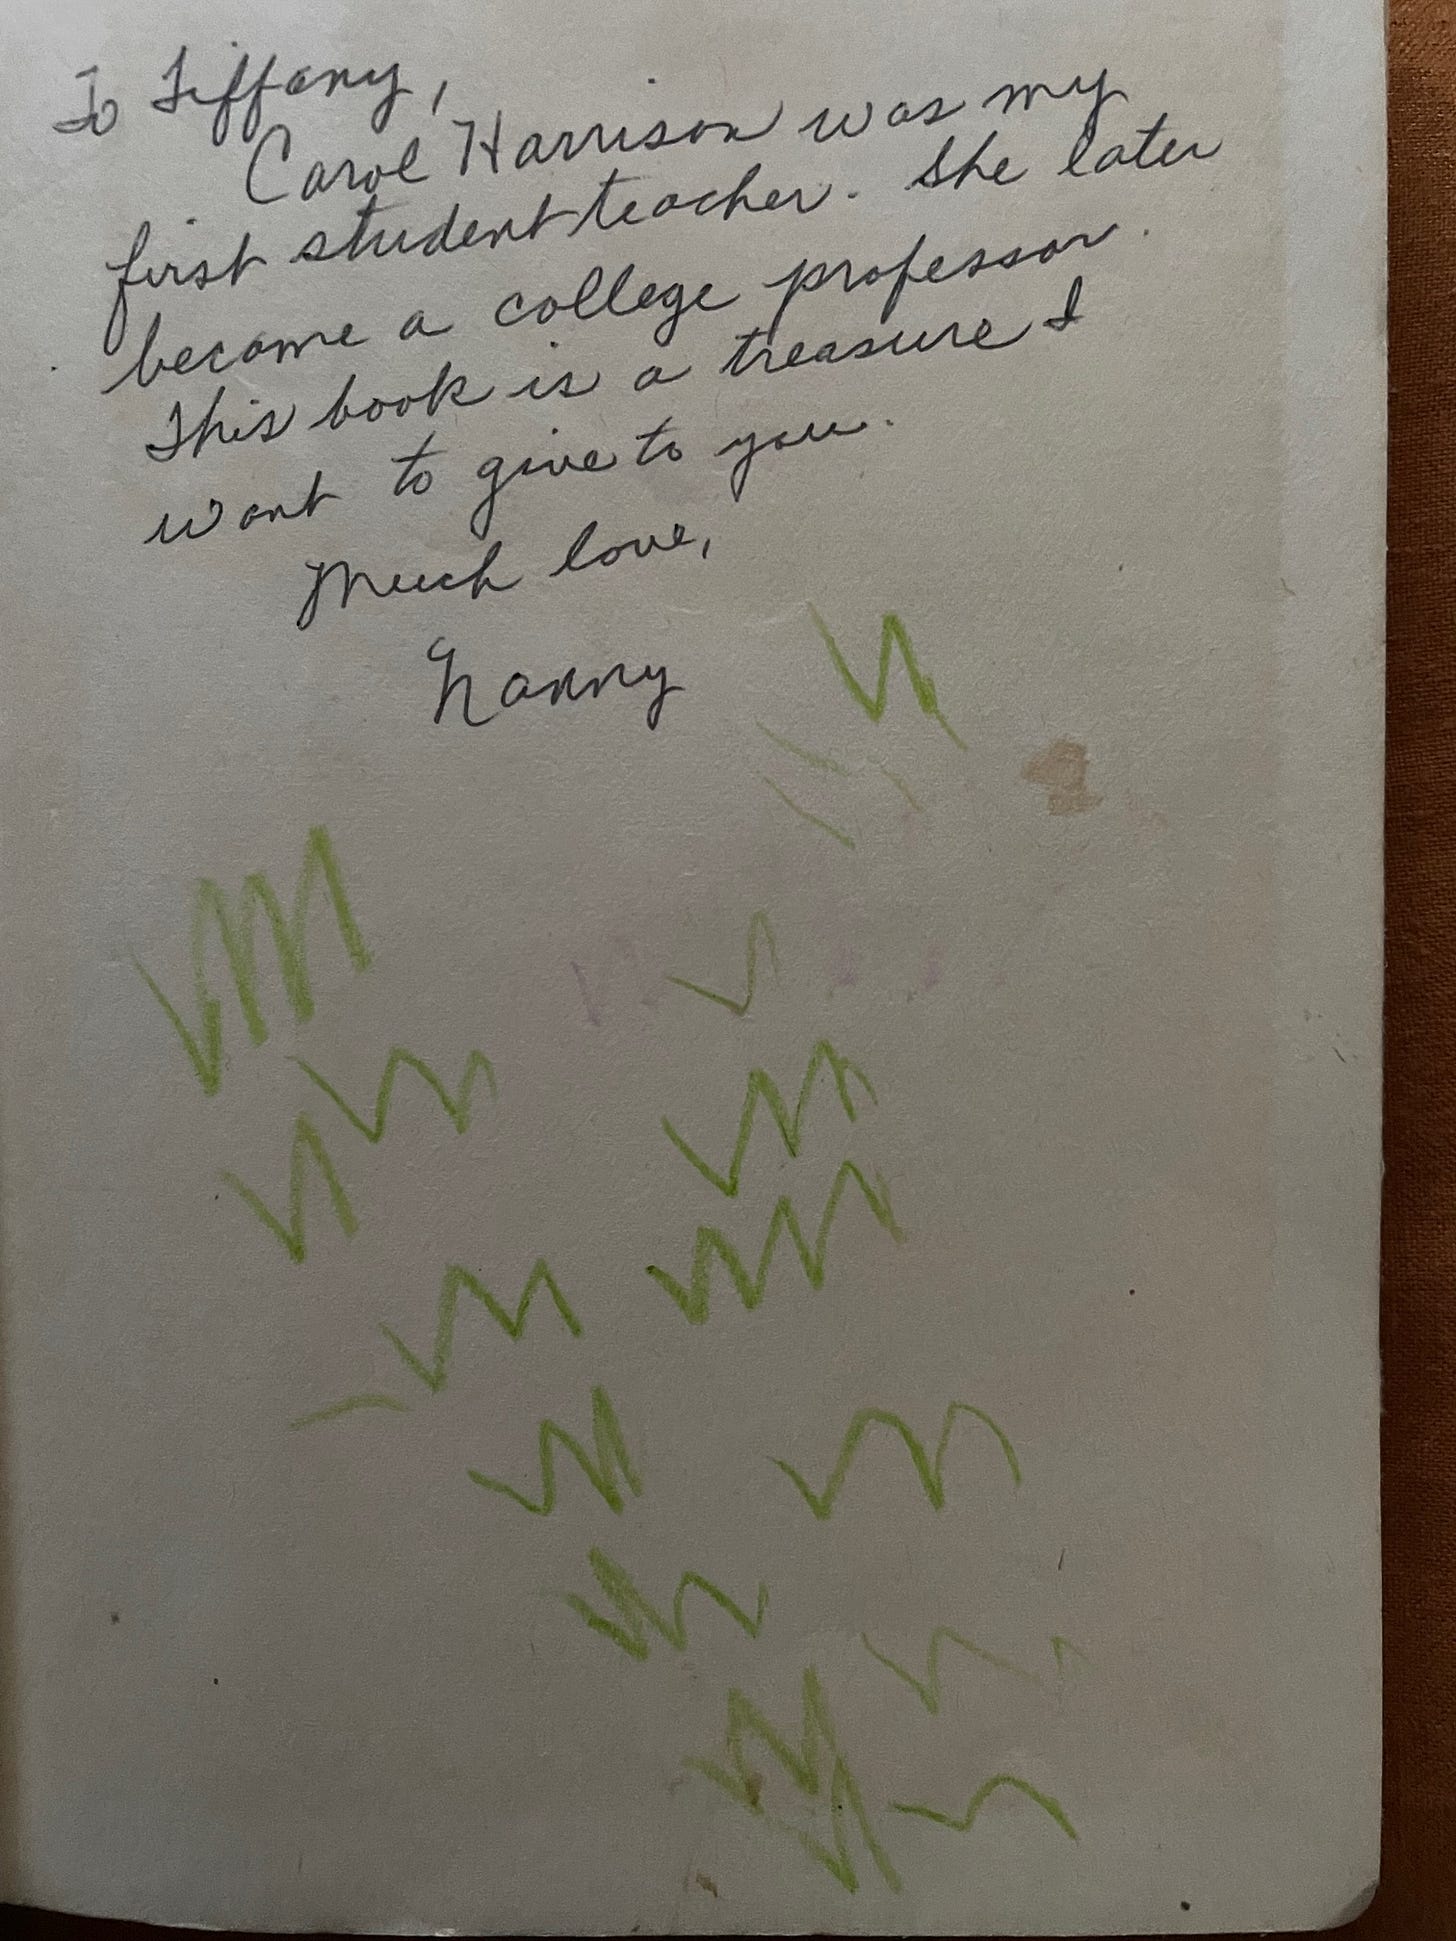 To Tiffany,
Carol Harrison was my
first student teacher. She later
became a college professor.
This book is a treasure I
want to give to you.
Much love,
Nanny